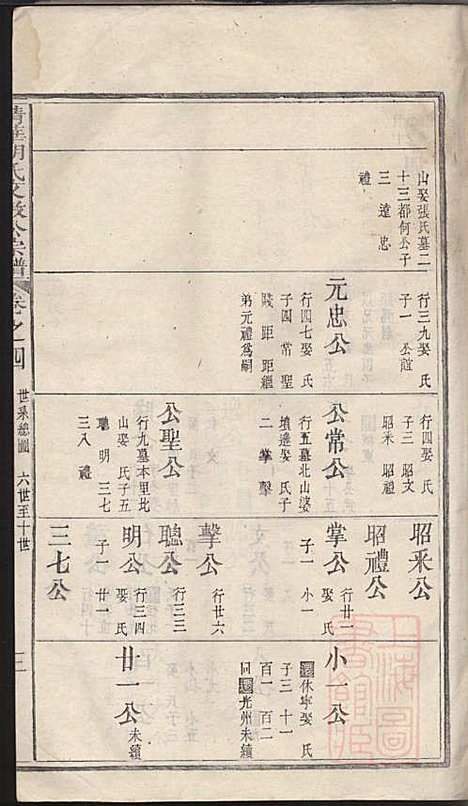 清華胡氏文敏公宗譜
卷之四
世系總圖 六世至十世
三
山娶張氏墓二
十三都何公子
三 達 忠
禮
行三九娶 氏
子一 公誼
元忠公
行四七娶 氏
子四 常 聖
賤 距 距繼
弟元禮爲嗣
行四 娶 氏
子三 昭文
昭釆 昭禮
公常公
行五墓北山婆
墳進娶 氏子
二 掌 擊
公聖公
行九墓本里北
山娶 氏子五
聰 明 三七
三八 禮
昭釆公
昭禮公
掌公
行廿一
娶 氏
子一 小一
擊公
行廿六
聰公
行三三
明公
行三四
娶 氏
子一 廿一
三七公
小一公
遷休寧娶 氏
子三 十一
百一 百二
同遷光州未續
廿一公
未續
上海圖書館藏